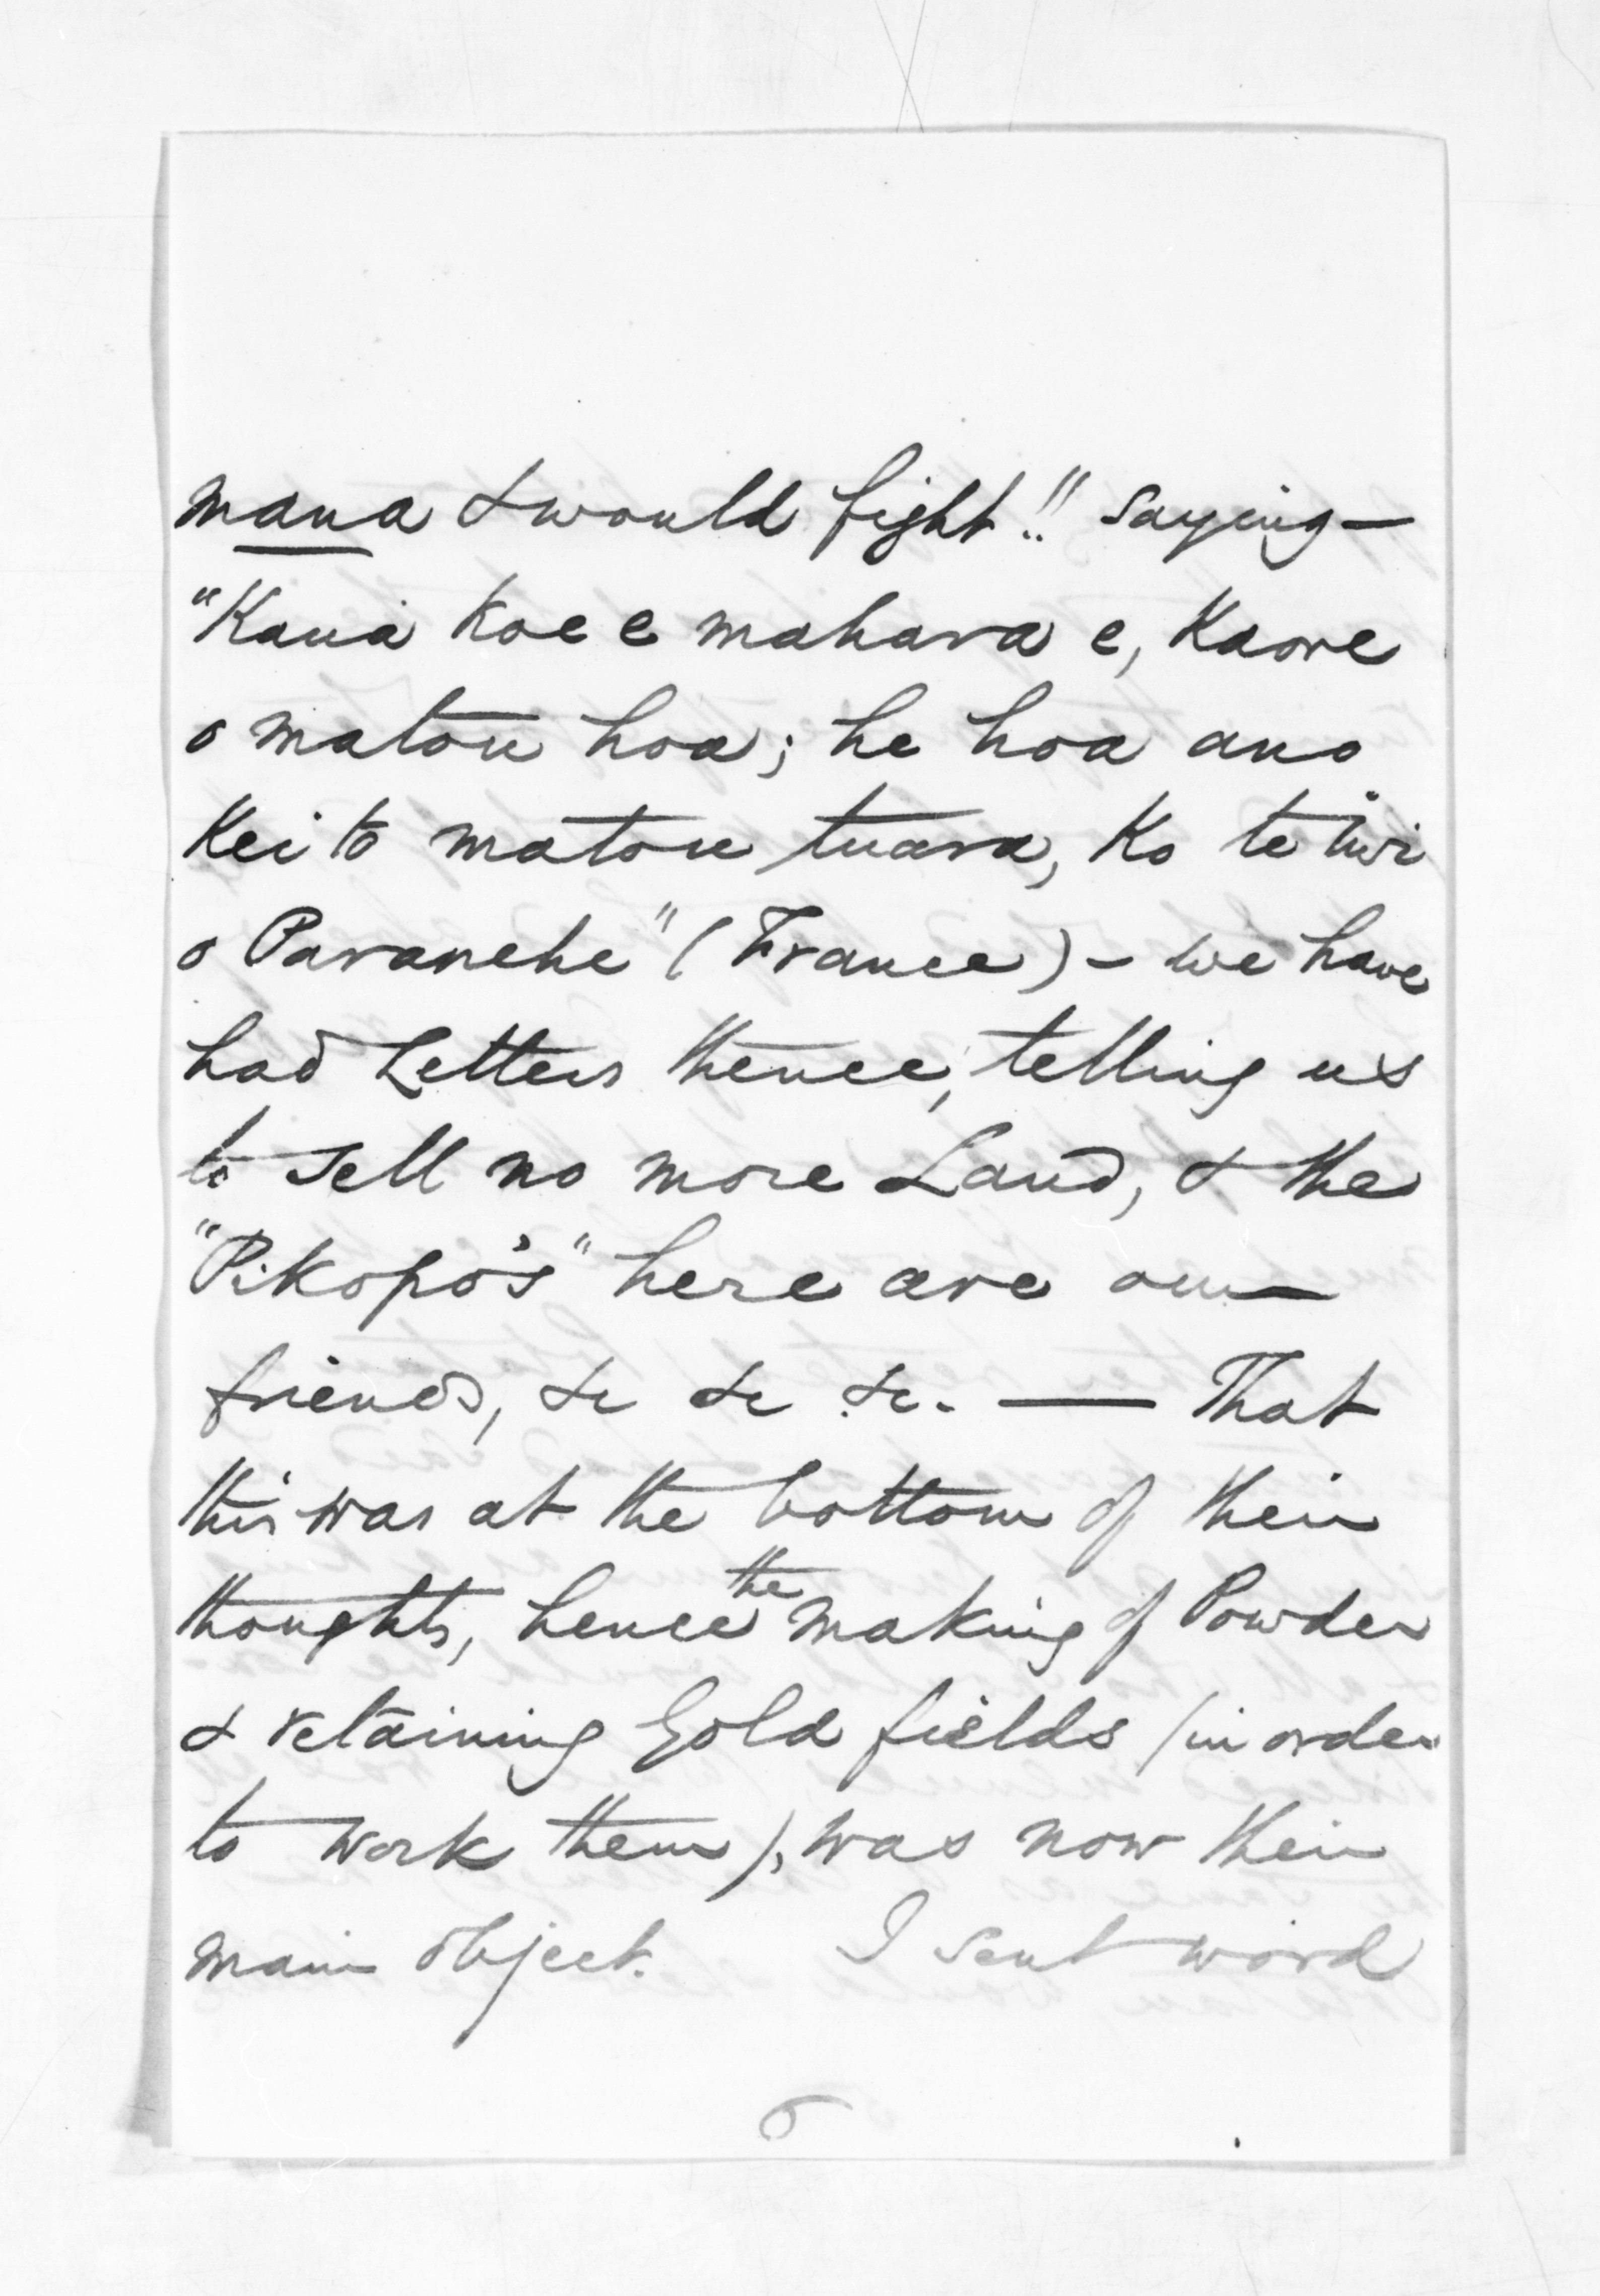 mana & would fight!! saying—
"Kaua koe e mahara e, Kaore
o matou hoa; he hoa ano
Kei to matou tuara, Ko te iwi
o Paranehe" (France) – we have
had Letters thence, telling us
to sell no more Land, & the
"Pikopo's" here are our
friends, &c &c &c. — That
this was at the bottom of their
thoughts, hence the making of Powder
& retaining Gold fields (in order
to work them), was now their
main object. I sent word
6